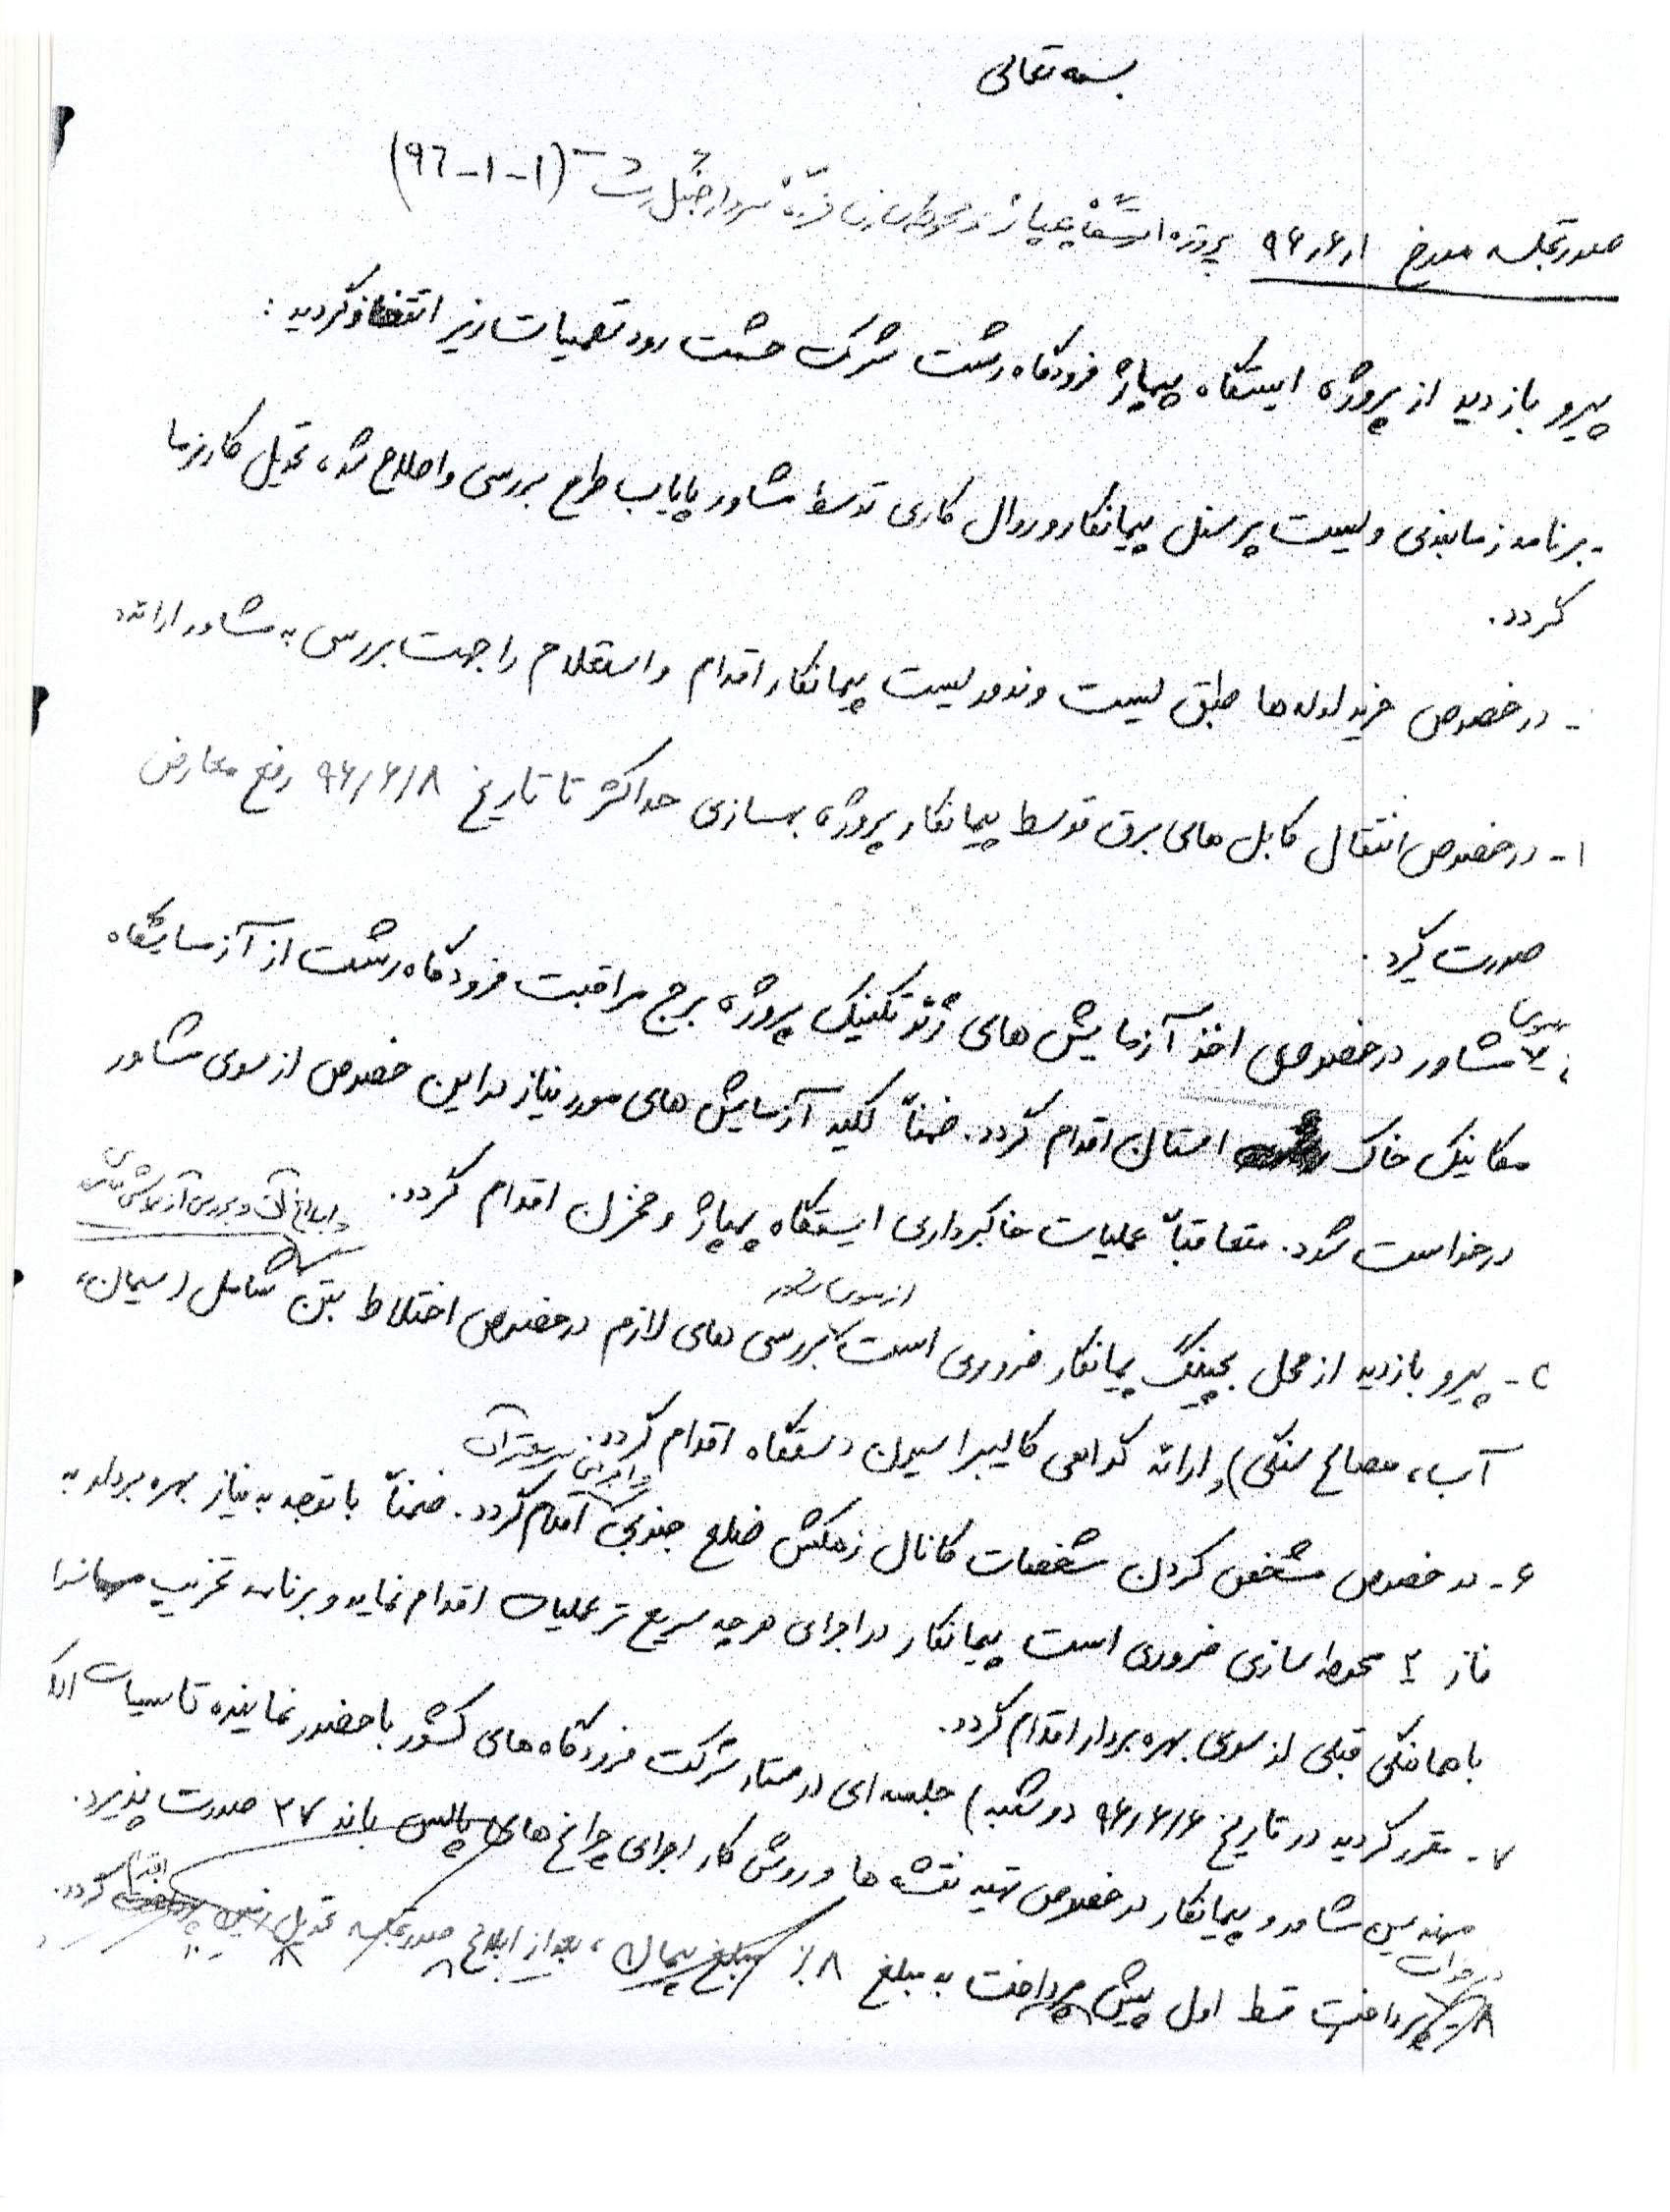 بسمه تعالی
صورتجلسه مورخ ۹۶٫۶٫۱ پروژه ایستگاه پمپاژ و محوطه سازی فرودگاه سردار جنگل رشت (۱-۱-۹۶)
پیرو بازدید از پروژه ایستگاه پمپاژ فرودگاه رشت شرکت هشت رود تصمیمات زیر اتخاذ گردید :
- برنامه زمانبندی و لیست پرسنل پیمانکار و روال کاری توسط مشاور پایاب طرح بررسی و اصلاح شده تحویل کارفرما
گردد.
- در خصوص خرید لوله ها طبق لیست وندور لیست پیمانکار اقدام و استعلام را جهت بررسی به مشاور ارائه
- در خصوص انتقال کابل های برق توسط پیمانکار پروژه بهسازی حداکثر تا تاریخ ۹۶/۶/۸ رفع معارض
صورت گیرد .
مشاور در خصوص اخذ آزمایش های ژئوتکنیک پروژه برج مراقبت فرودگاه رشت از آزمایشگاه
مکانیک خاک استان اقدام گردد. ضمناً کلیه آزمایش های مورد نیاز در این خصوص از سوی مشاور
درخواست شود. متعاقباً عملیات خاکبرداری ایستگاه پمپاژ و مخزن اقدام گردد.
از سوی مشاور
۵- پیرو بازدید از محل بچینگ پیمانکار ضروری است بررسی های لازم در خصوص اختلاط بتن شامل (سیمان،
آب، مصالح سنگی) و ارائه گواهی کالیبراسیون دستگاه اقدام گردد.
۶- در خصوص مشخص کردن مشخصات کانال زهکش ضلع جنوبی اقدام گردد. ضمناً با توجه به نیاز بهره بردار به
فاز ۲ محوطه سازی ضروری است پیمانکار در اجرای هر چه سریع تر عملیات اقدام نماید و برنامه تخریب
با هماهنگی قبلی از سوی بهره بردار اقدام گردد.
۷- مقرر گردید در تاریخ ۹۶٫۶٫۶ دوشنبه) جلسه ای در ستاد شرکت فرودگاه های کشور با حضور نماینده تاسیسات
مهندسین مشاور و پیمانکار در خصوص تهیه نقشه ها و روش کار اجرای چراغ های پالس باند ۲۷ صورت پذیرد.
۸- پرداخت قسط اول پیش پرداخت به مبلغ ۸٪ مبلغ پیمان، بعد از ابلاغ صورتجلسه تحویل زمین گردد.